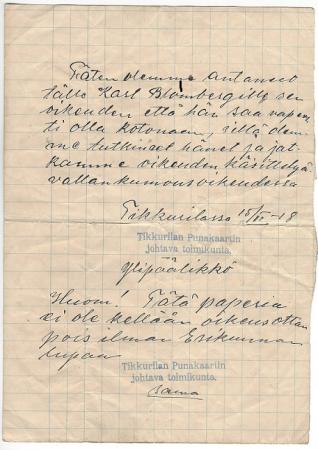 Täten olemme antaneet
tälle Karl Blombergille sen
oikeuden että hän saa vapaas
ti olla kotonaan, sillä olem
me tutkineet hänet ja jat
kamme oikeuden käsittelyä
vallankumousoikeudessa
Tikkurilassa 15/II-18
Tikkurilan Punakaartin
johtava toimikunta.
Ylipäälikkö
Huom! Tätä paperia
ei ole kellään oikeus ottaa
pois ilman Esikunnan
lupaa
Tikkurilan Punakaartin
johtava toimikunta.